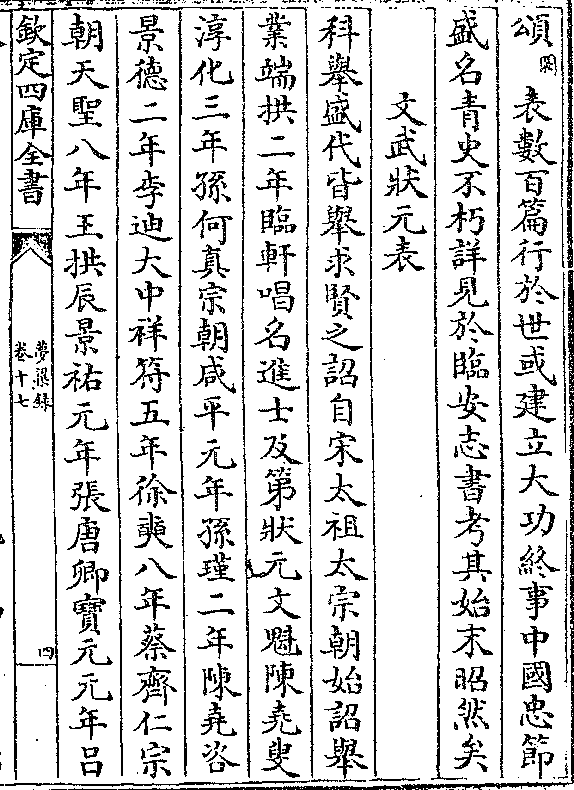 頌闕表數百篇行於世或建立大功終事中國忠節
盛名青史不朽詳見於臨安志書考其始末昭然矣
文武狀元表
科舉盛代皆舉求賢之詔自宋太祖太宗朝始詔舉
業端拱二年臨軒唱名進士及第狀元文魁陳堯叟
淳化三年孫何真宗朝咸平元年孫瑾二年陳堯咨
景德二年李迪大中祥符五年徐奭八年蔡齊仁宗
朝天聖八年王拱辰景祐元年張唐卿寶元元年呂
欽定四庫全書
夢粱錄
卷十七
四